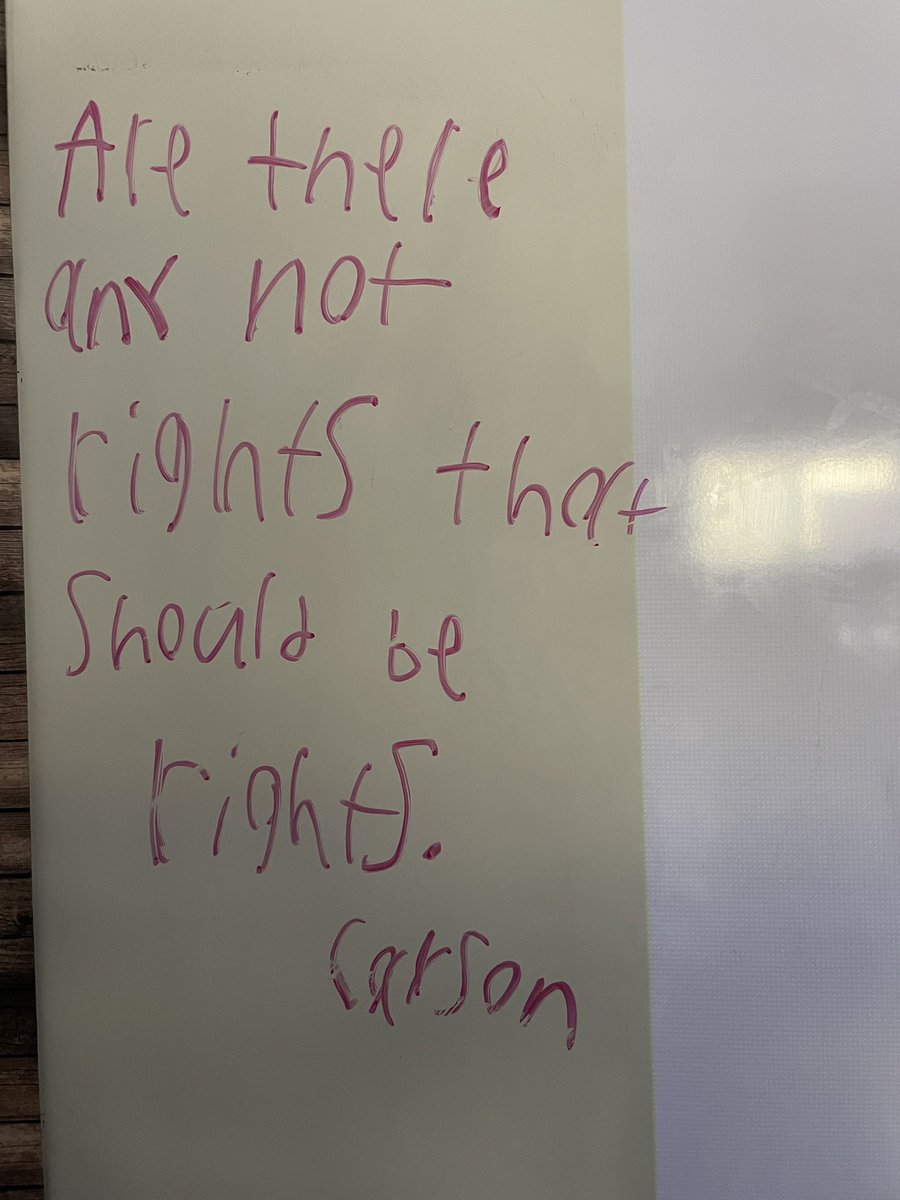 Are there
any not
rights that
Should be
rights.
Carson